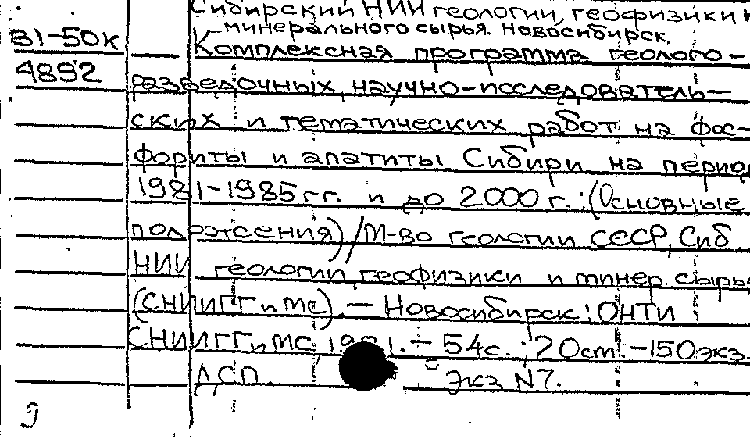 Сибирский НИИ геологии, геофизики и
минерального сырья. Новосибирск.
81-50к
4892
Комплексная программа геолого-
разведочных, научно-исследователь-
ских и тематических работ на фос-
фориты и апатиты Сибири на период
1981-1985 гг. и до 2000 г.: (Основные
положения) / М-во геологии СССР, Сиб
НИИ геологии, геофизики и минер сырья
(СНИИГГиМС). - Новосибирск: ОНТИ
СНИИГГиМС, 1981. - 54с.; 20ст. - 150экз.
ДСП. Экз N7.